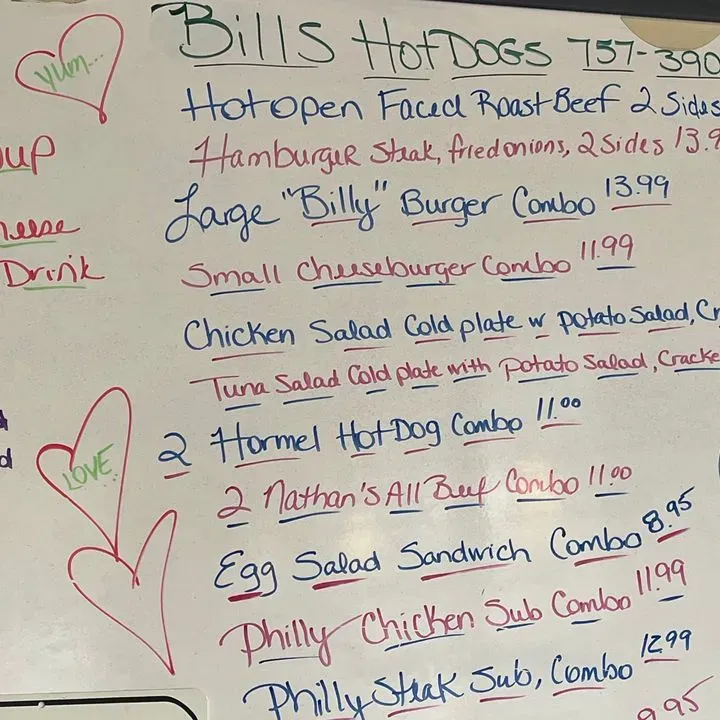 Bills HotDOGS 757-390
YUM...
Hot open Faced Roast Beef 2 Sides
Hamburger Steak, fried onions, 2 Sides 13.9
Large "Billy" Burger Combo 13.99
Drink
Small Cheeseburger Combo 11.99
Chicken Salad Cold plate w potato Salad, Cr
Tuna Salad Cold plate with potato Salad, Cracke
2 Hormel Hot Dog Combo 11.00
LOVE
2 Nathan's All Beef Combo 11.00
Egg Salad Sandwich Combo 8.95
Philly Chicken Sub Combo 11.99
Philly Steak Sub, Combo 12.99
9.95